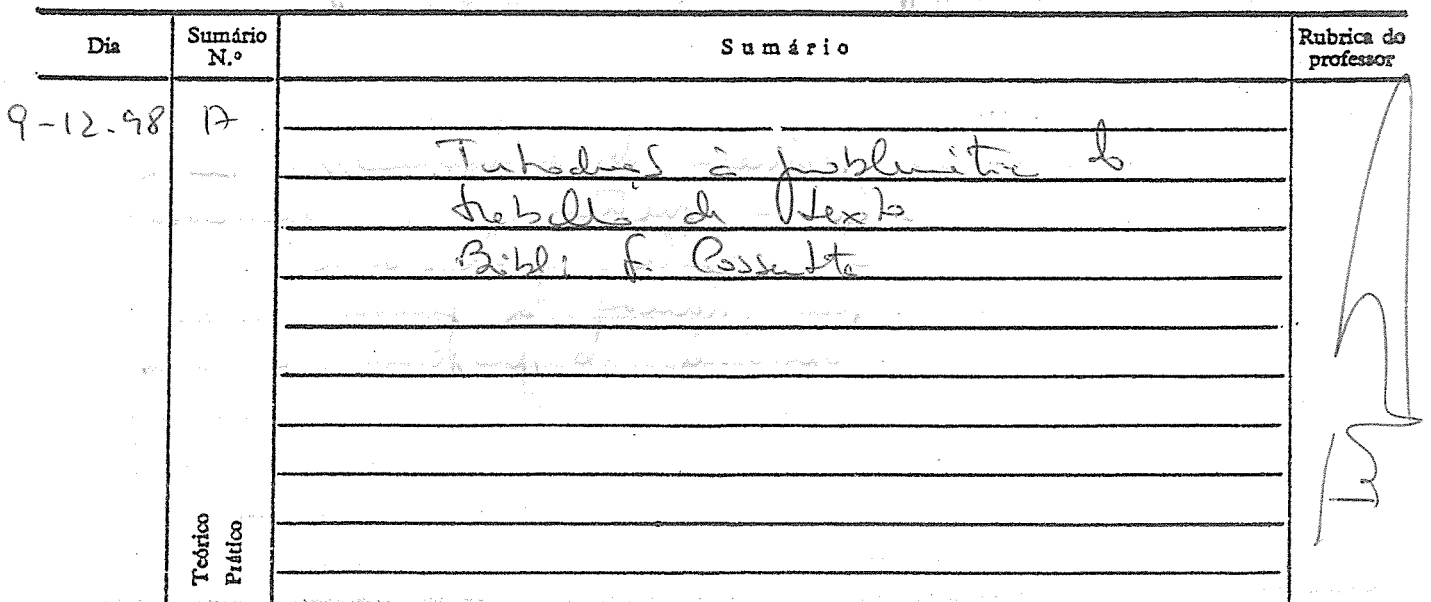 Dia
Sumário
N.º
Sumário
Rubrica do
professor
9-12-98
17
Introdução à problemática do
trabalho de texto
Bibli F. Cossutta
Teórico
Prático